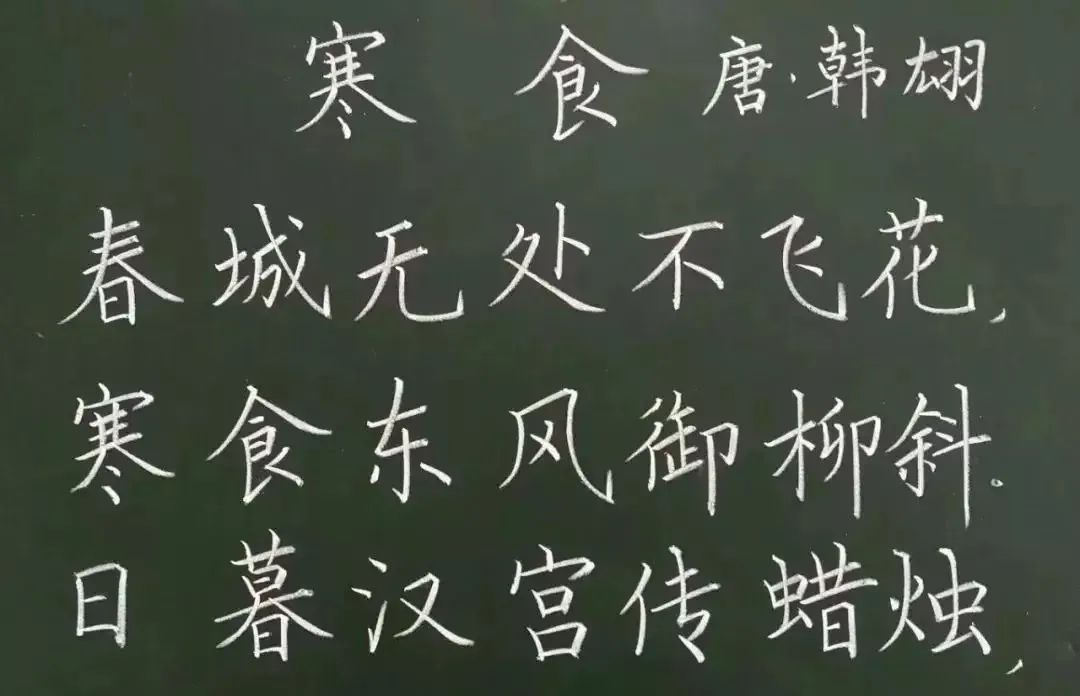 寒食 唐·韩翃
春城无处不飞花，
寒食东风御柳斜。
日暮汉宫传蜡烛，